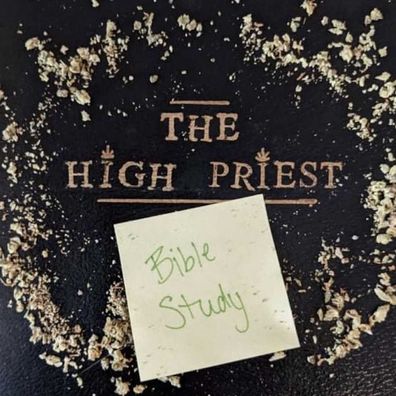 THE
HIGH PRIEST
Bible
Study